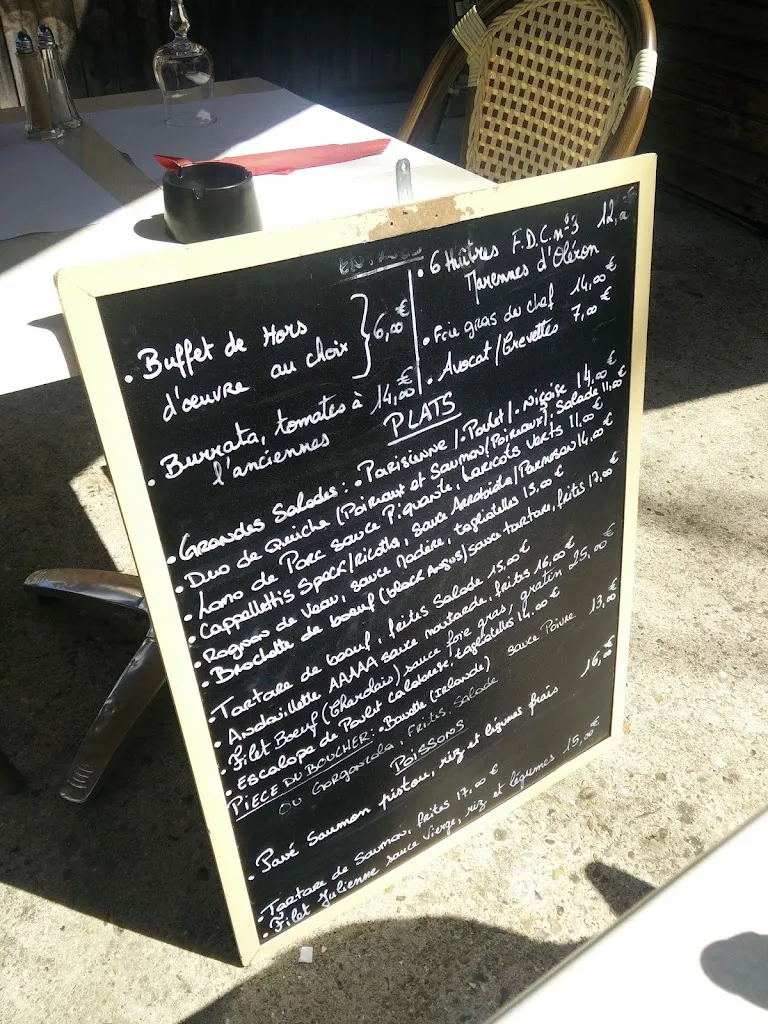 ENTRÉES
• Buffet de Hors
d'œuvre au choix } 6,00 €
• Burrata, tomates à 14,00 €
l'anciennes
• 6 Huîtres F.D.C. n°3 12,00 €
Marennes d'Oléron
• Foie gras du chef 14,00 €
• Avocat / Crevettes 7,00 €
PLATS
• Grandes Salades : • Parisienne / • Poulet / • Niçoise 14,00 €
• Duo de Quiche (Poireaux et Saumon/Poireaux), Salade 11,00 €
• Lomo de Porc sauce Piquante, Haricots verts 11,00 €
• Cappellettis Speck/Ricotta, sauce Arrabiata/Parmesan 14,00 €
• Rognon de Veau, sauce Madère, tagliatelles 15,00 €
• Brochette de bœuf (black Angus) sauce tartare, frites 17,00 €
• Tartare de bœuf, frites Salade 15,00 €
• Andouillette AAAAA sauce moutarde, frites 16,00 €
• Filet Bœuf (Charolais) sauce foie gras, gratin 25,00 €
• Escalope de Poulet Calabraise, tagliatelles 14,00 €
PIECE DU BOUCHER : • Bavette (Irlande) sauce Poivre 13,00 €
ou Gorgonzola, Frites, Salade
POISSONS
• Pavé Saumon pistou, riz et légumes frais 16,00 €
• Tartare de Saumon, frites 17,00 €
• Filet Julienne sauce Vierge, riz et légumes 15,00 €